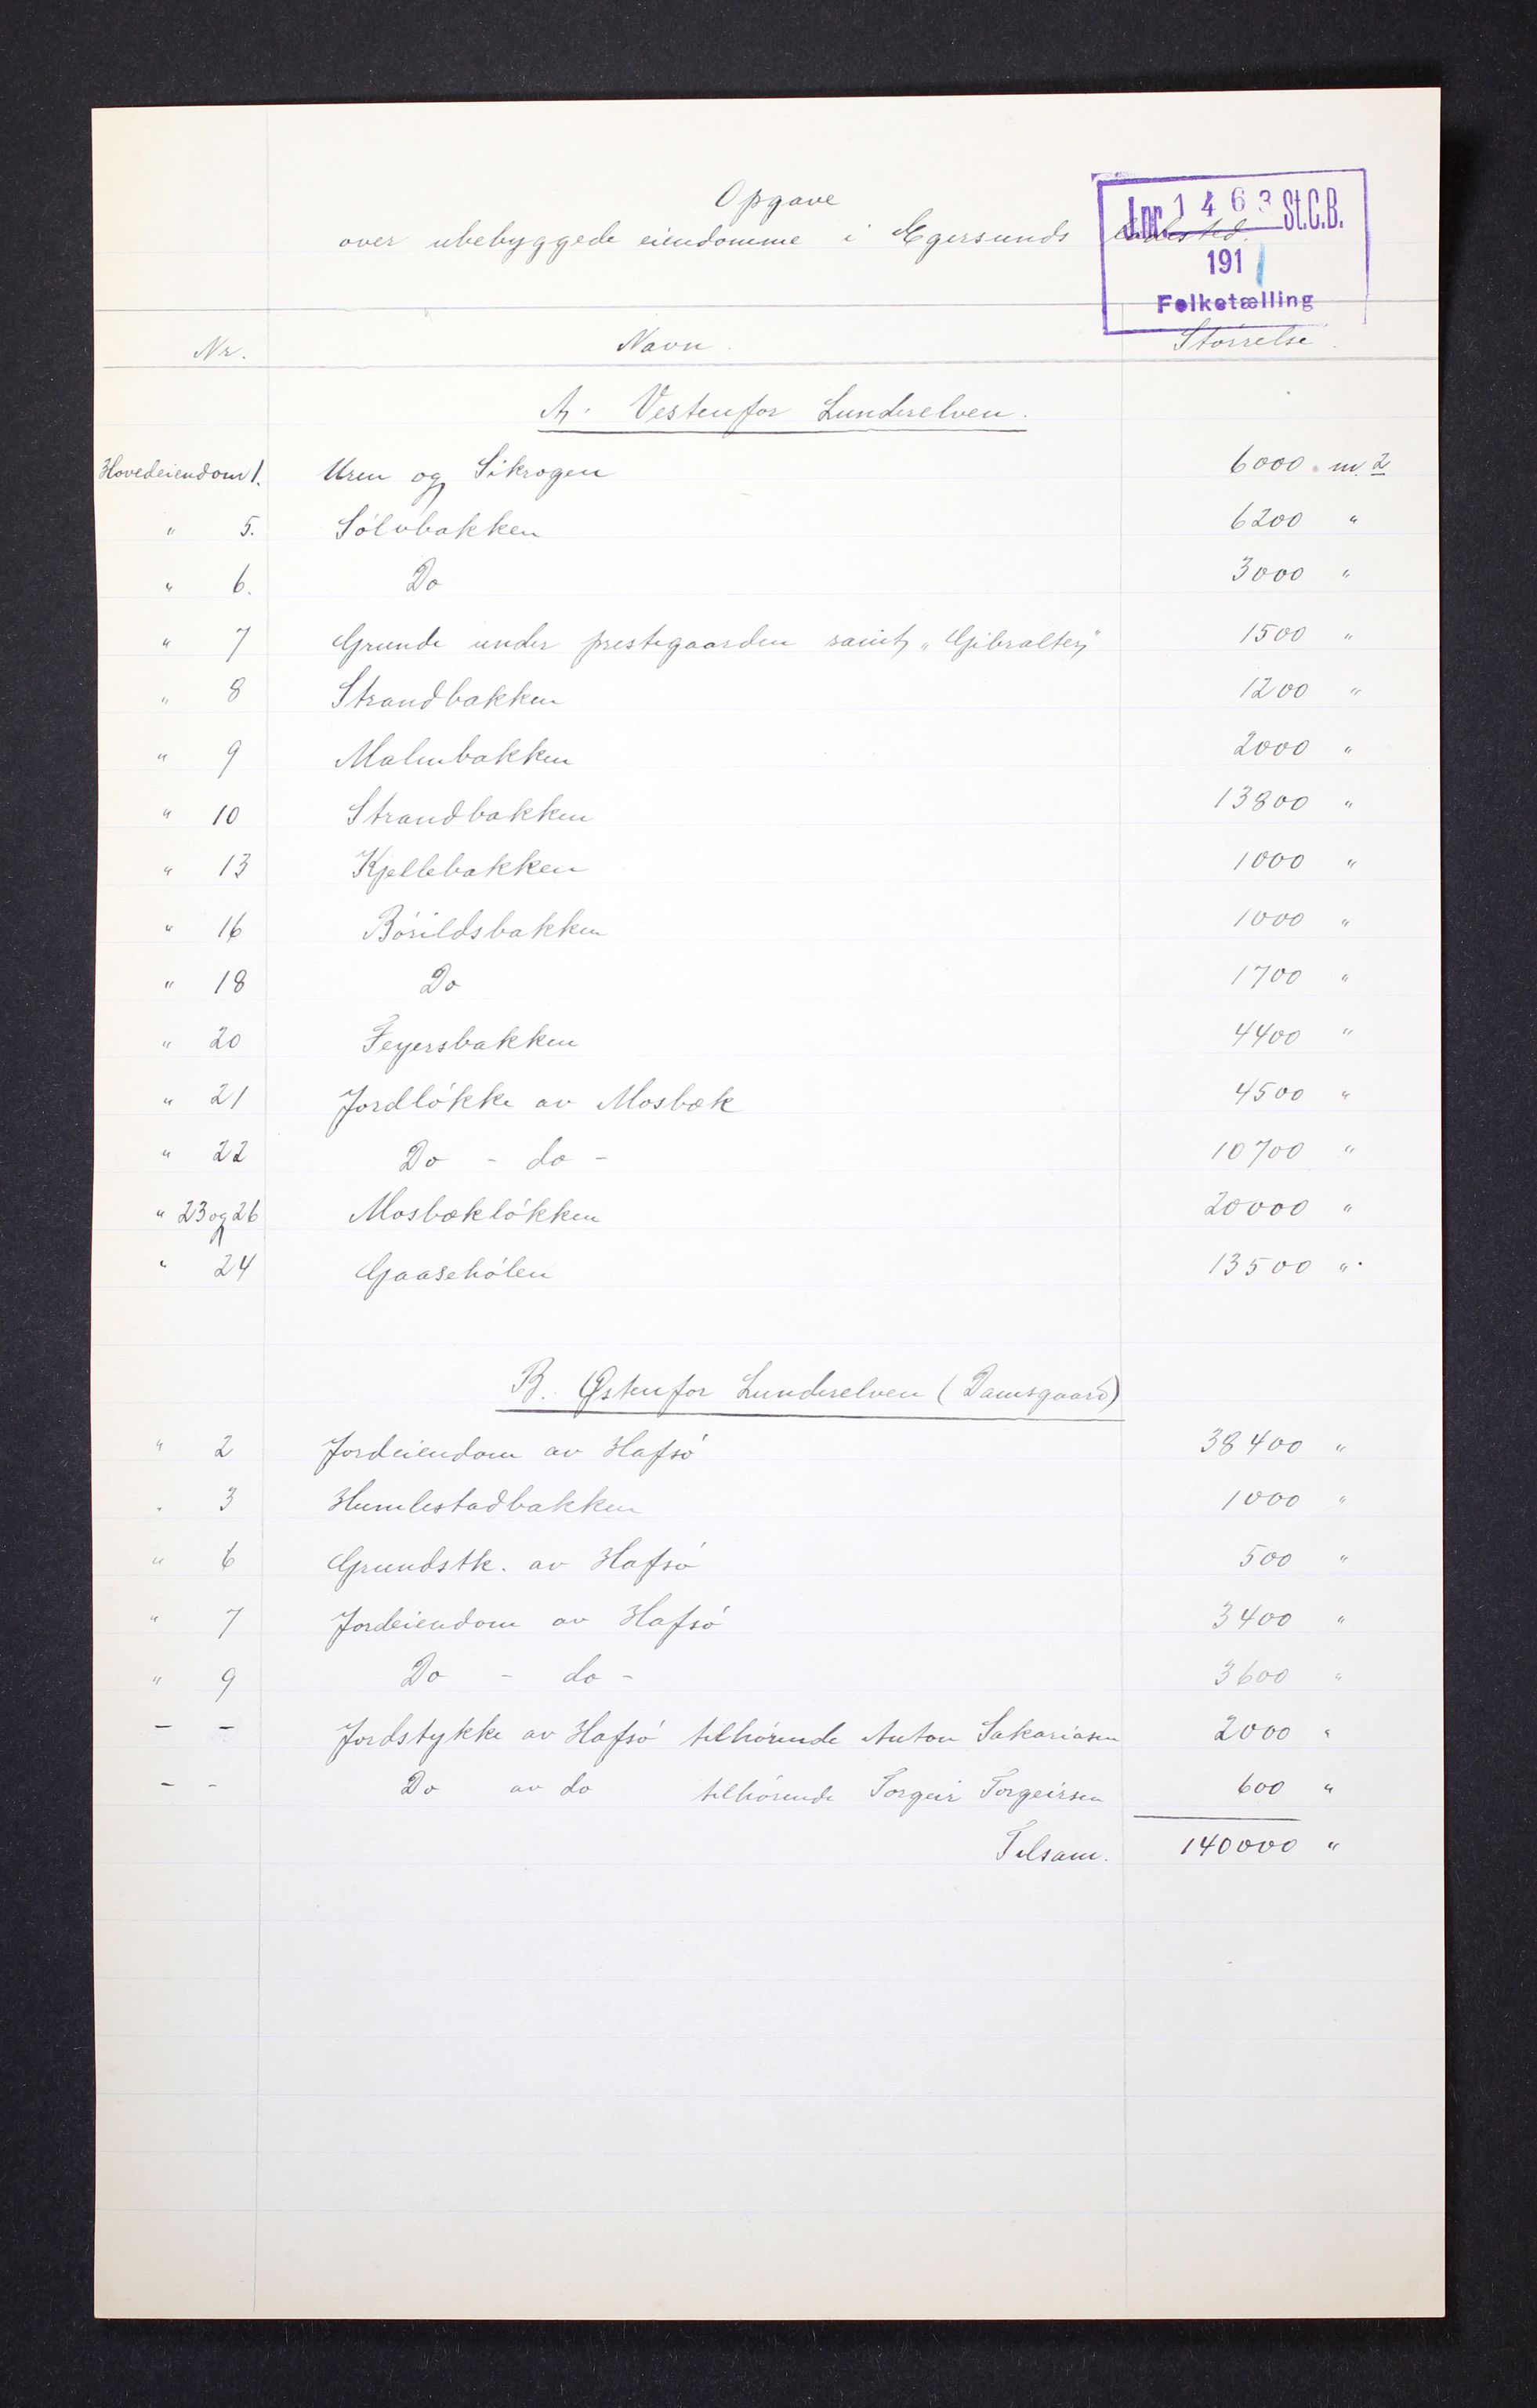 Opgave
over ubebyggede eiendomme i Egersunds ladested.
J.nr. 1463 St.C.B.
1911
Folketælling
Nr. Navn. Størrelse.
A. Vestenfor Lundeelven.
Hovedeiendom 1. Uren og Sikrogen 6000 m 2
" 5. Sölvbakken 6200 "
" 6. Do 3000 "
" 7 Grunde under prestegaarden samt "Gibralter" 1500 "
" 8 Strandbakken 1200 "
" 9 Malmbakken 2000 "
" 10 Strandbakken 13800 "
" 13 Kjellebakken 1000 "
" 16 Börildsbakken 1000 "
" 18 Do 1700 "
" 20 Feyersbakken 4400 "
" 21 Jordlökke av Mosbæk 4500 "
" 22 Do - do - 10700 "
" 23 og 26 Mosbæklökken 20000 "
" 24 Gaasehölen 13500 "
B. Østenfor Lundeelven (Damsgaard)
" 2 Jordeiendom av Hafsö 38400 "
" 3 Humlestadbakken 1000 "
" 6 Grundstk. av Hafsö 500 "
" 7 Jordeiendom av Hafsö 3400 "
" 9 Do - do - 3600 "
- - Jordstykke av Hafsö tilhörende Anton Sakariasen 2000 "
- - Do av do tilhörende Torgeir Torgeirsen 600 "
Tilsam. 140000 "